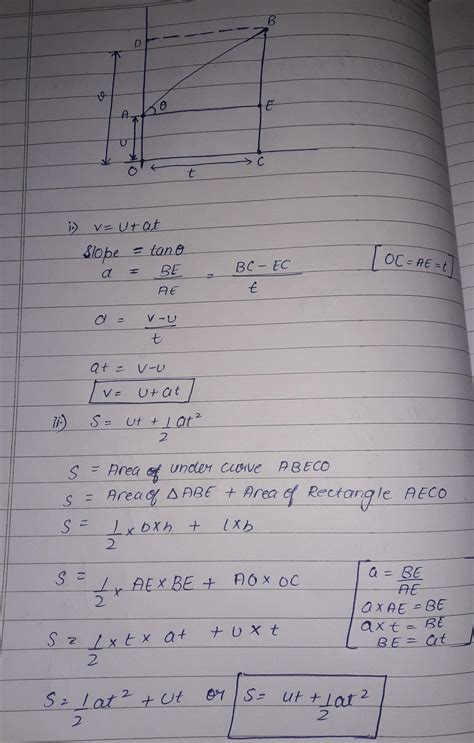 B
D
v
A θ E
u
O t C
i.) v= u+at
Slope = tanθ
a = BE/AE = BC-EC/t [OC=AE=t]
a = v-u/t
at = v-u
v= u+at
ii.) S= ut + 1/2 at²
S = Area of under curve ABECO
S = Area of △ABE + Area of Rectangle AECO
S = 1/2 × b×h + l×b
S = 1/2 × AE×BE + AO×OC
a = BE/AE
a×AE = BE
a×t = BE
BE = at
S = 1/2 × t × at + u×t
S = 1/2 at² + ut or S= ut + 1/2 at²